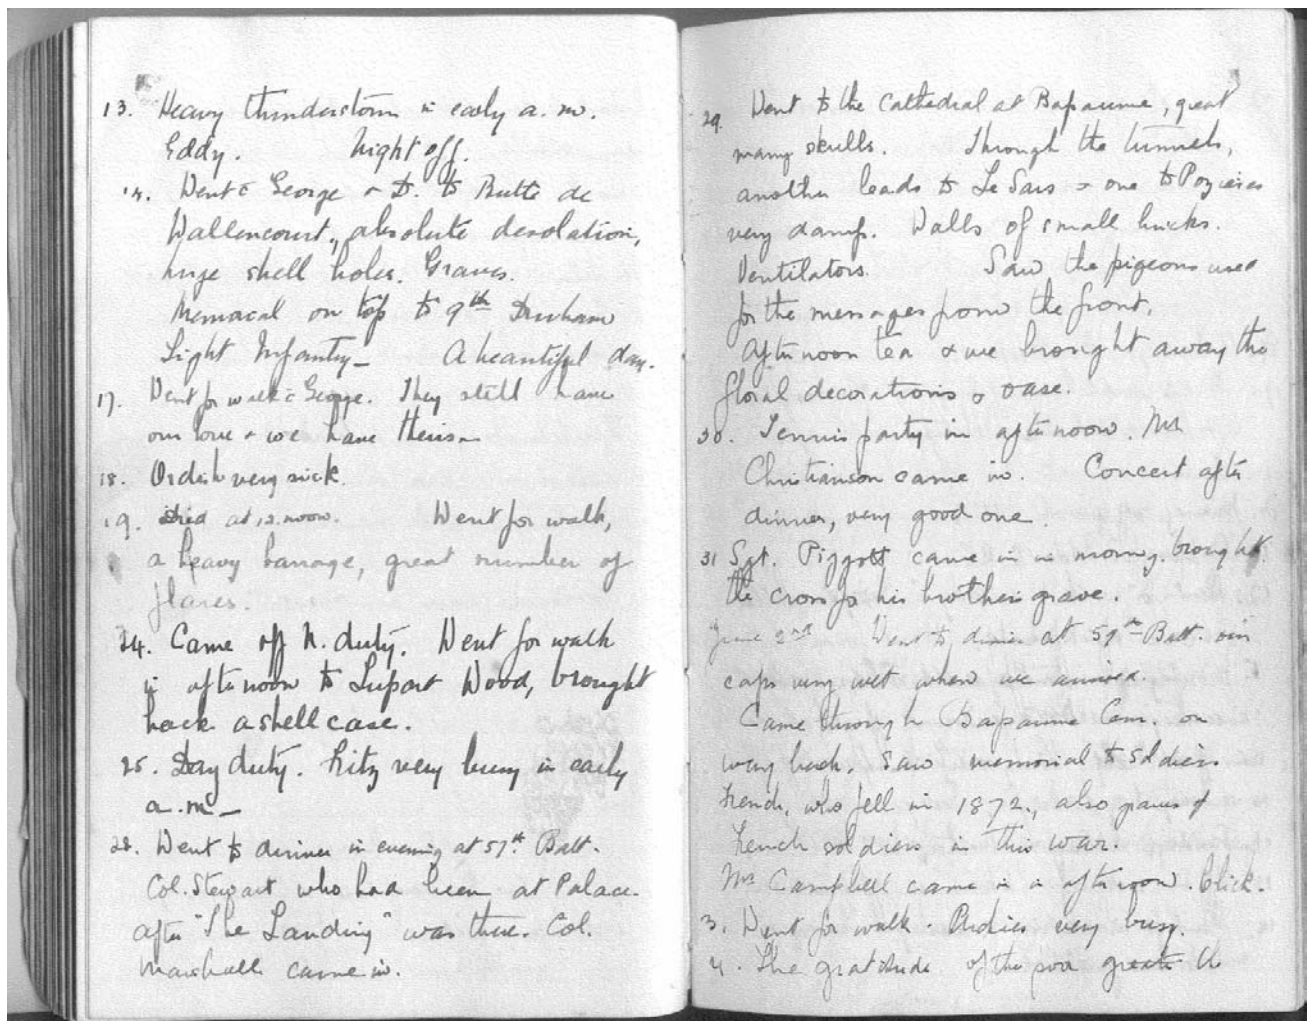 13. Heavy thunderstorm in early a.m.
Eddy. Night off.
14. Went c̄ George & D. to Butte de
Wallencourt, absolute desolation,
huge shell holes. Graves.
Memorial on top to 9th Durham
Light Infantry – A beautiful day.
17. Went for walk c̄ George. They still have
our love & we have theirs –
18. Ordish very sick.
19. Died at 12 noon. Went for walk,
a heavy barrage, great number of
flares.
24. Came off N. duty. Went for walk
in afternoon to Lupart Wood, brought
back a shell case.
25. Day duty. Fritz very busy in early
a.m –
28. Went to dinner in evening at 57th Batt.
Col. Stewart who had been at Palace
after "The Landing" was there. Col.
Marshall came in.
29. Went to the Cathedral at Bapaume, great
many skulls. Through the tunnels,
another leads to Le Sars & one to Pozieres
very damp. Walls of small bricks.
Ventilators. Saw the pigeons used
for the messages from the front.
Afternoon tea & we brought away the
floral decorations & vase.
30. Tennis party in afternoon. Mr
Christianson came in. Concert after
dinner, very good one.
31 Sgt. Piggott came in in morng. brought
the cross for his brothers grave.
June 2nd Went to dinner at 57th Batt. our
caps very wet when we arrived.
Came through Bapaume Cem. on
way back. Saw memorial to soldiers
French, who fell in 1872., also graves of
French soldiers in this war.
Mr Campbell came in in afternoon.
3. Went for walk. Birdies very busy.
4. The gratitude of the poor